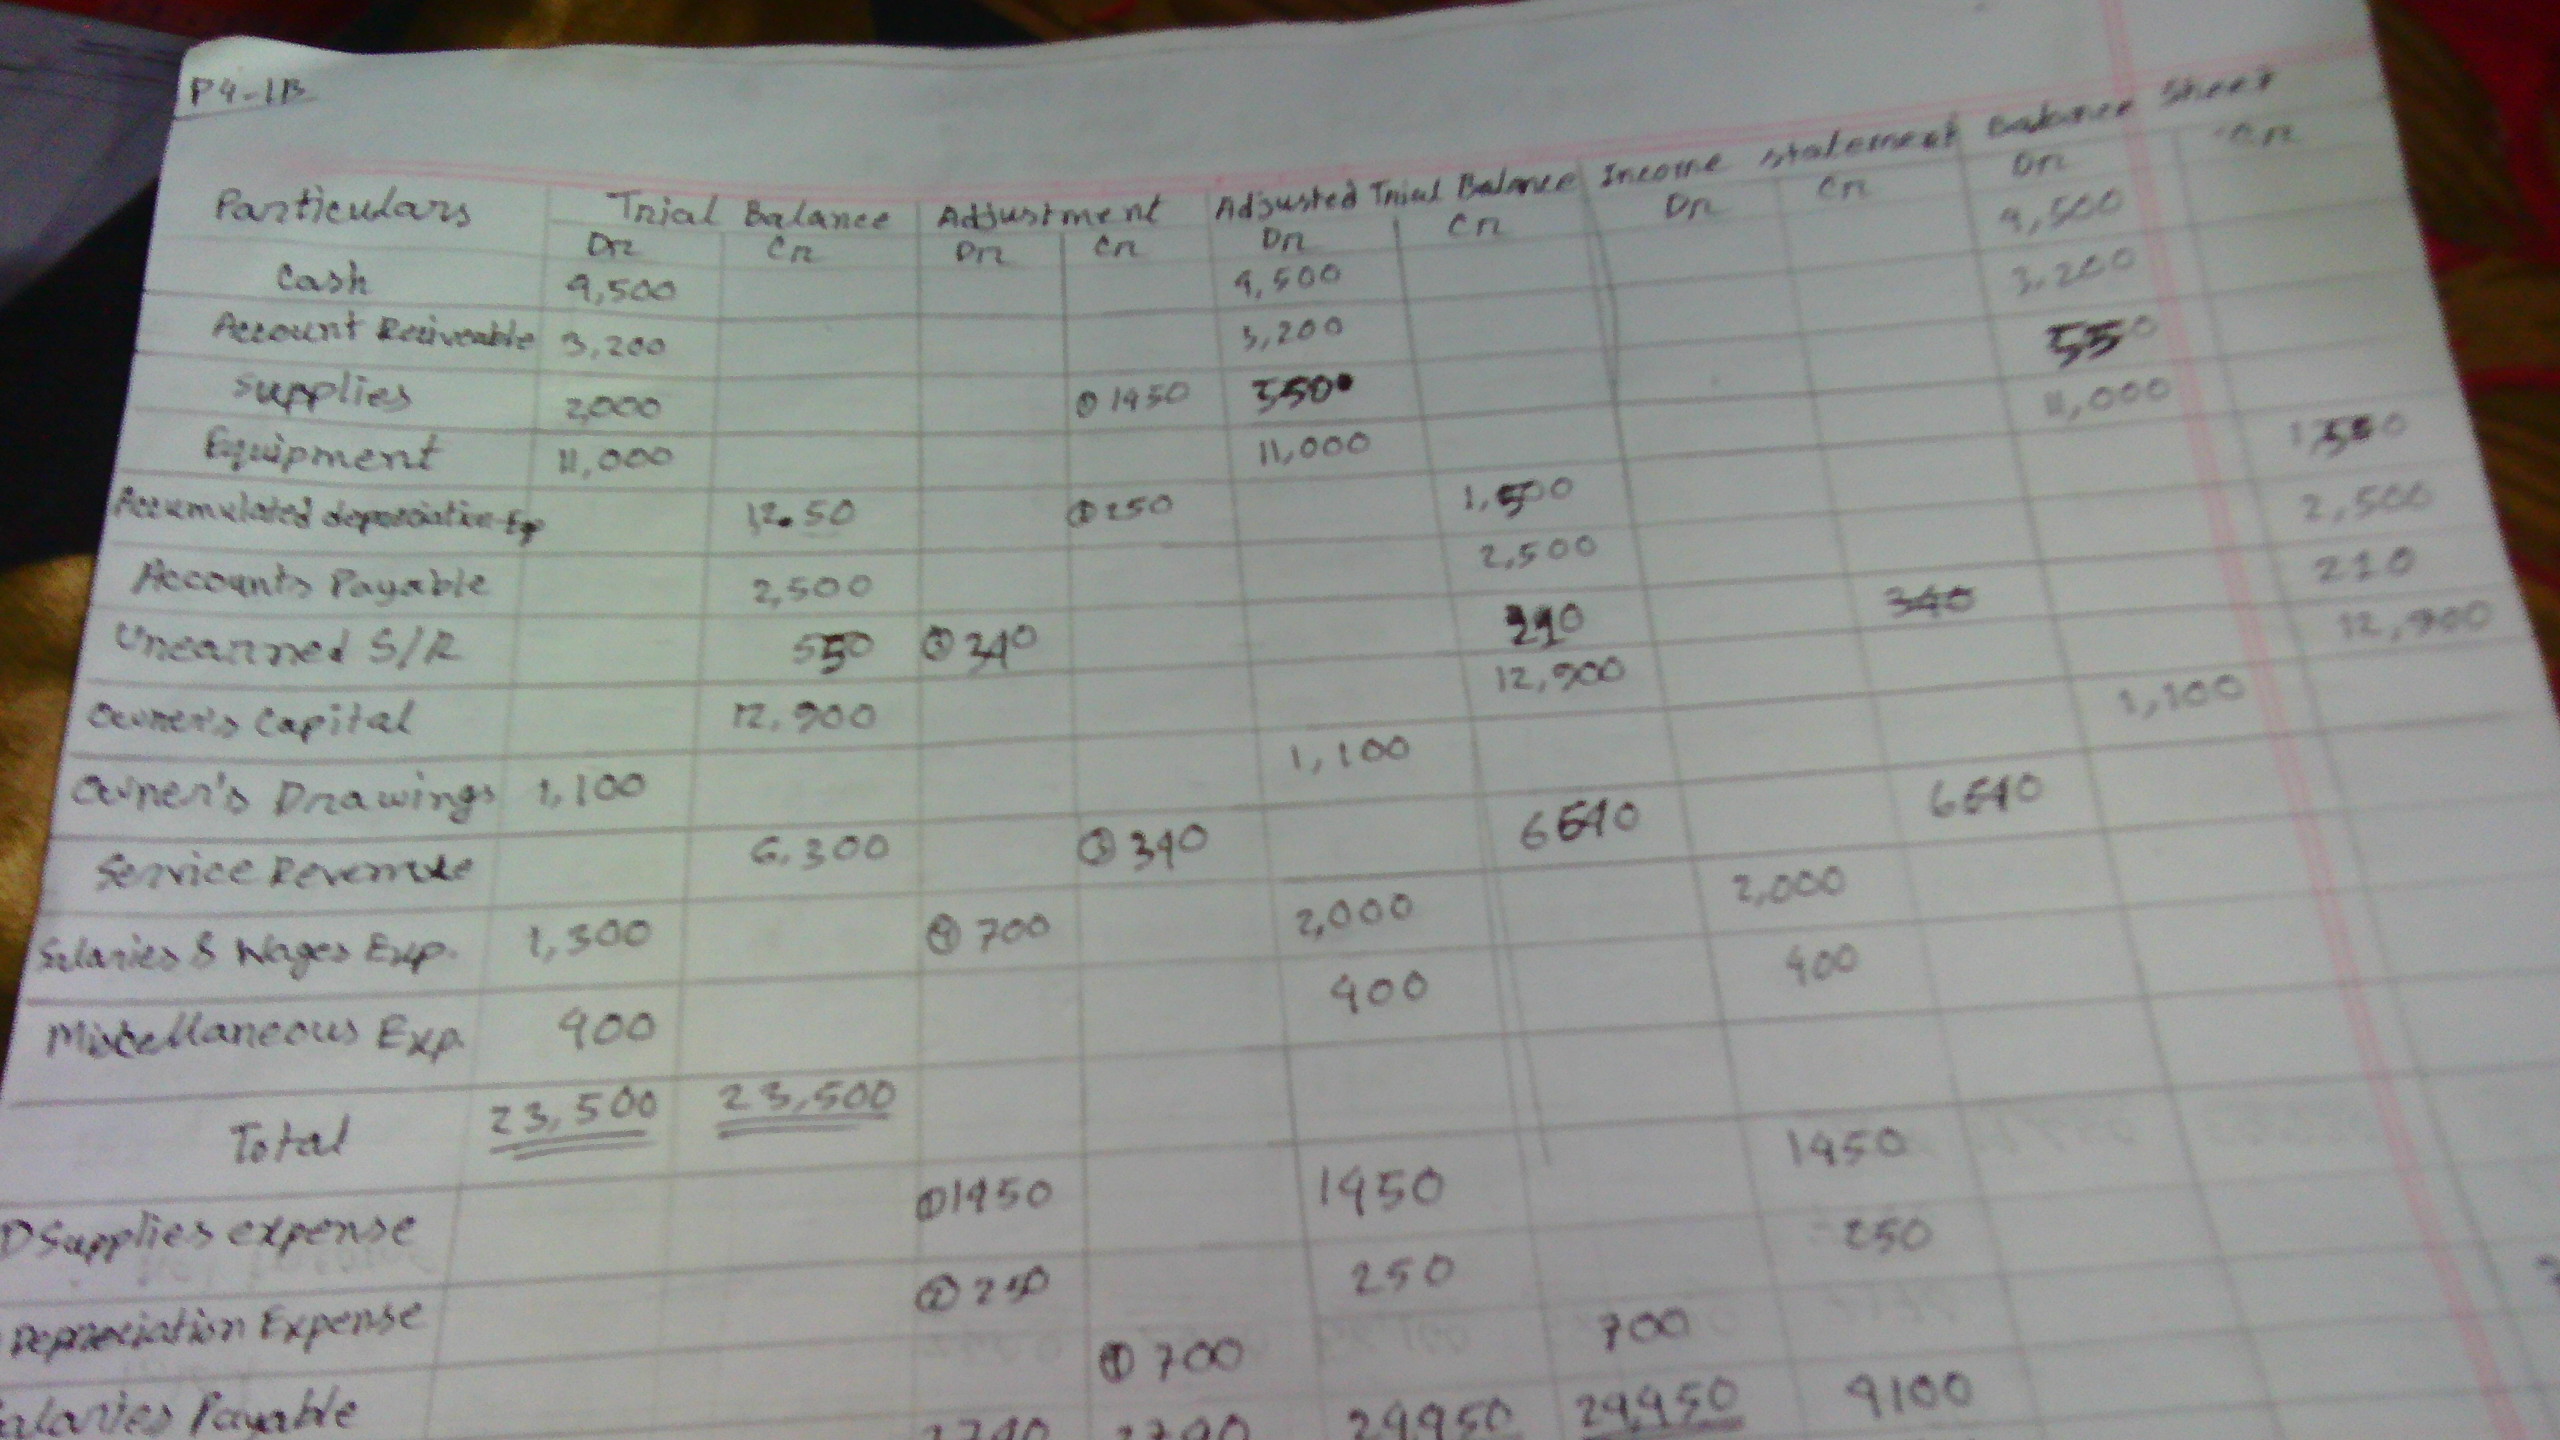 P4-1B
Particulars Trial Balance Adjustment Adjusted Trial Balance Income statement Balance Sheet
Dr Cr Dr Cr Dr Cr Dr Cr Dr Cr
Cash 4,500 4,500 4,500
Account Reciveable 3,200 3,200 3,200
Supplies 2,000 ① 1450 550 550
Equipment 11,000 11,000 11,000
Accumulated depreciation-Eqp 1250 ② 250 1,500 1500
Accounts Payable 2,500 2,500 2,500
Unearned S/R 550 ③ 340 210 340 210
Owner's Capital 12,900 12,900 12,900
Owner's Drawings 1,100 1,100 1,100
Service Revenue 6,300 ③ 340 6640 6640
Salaries & Wages Exp. 1,300 ④ 700 2,000 2,000
Miscellaneous Exp. 400 400 400
Total 23,500 23,500
Supplies expense ① 1450 1450 1450
Depreciation Expense ② 250 250 250
Salaries Payable ④ 700 700
2740 2740 24,450 24,450 4100